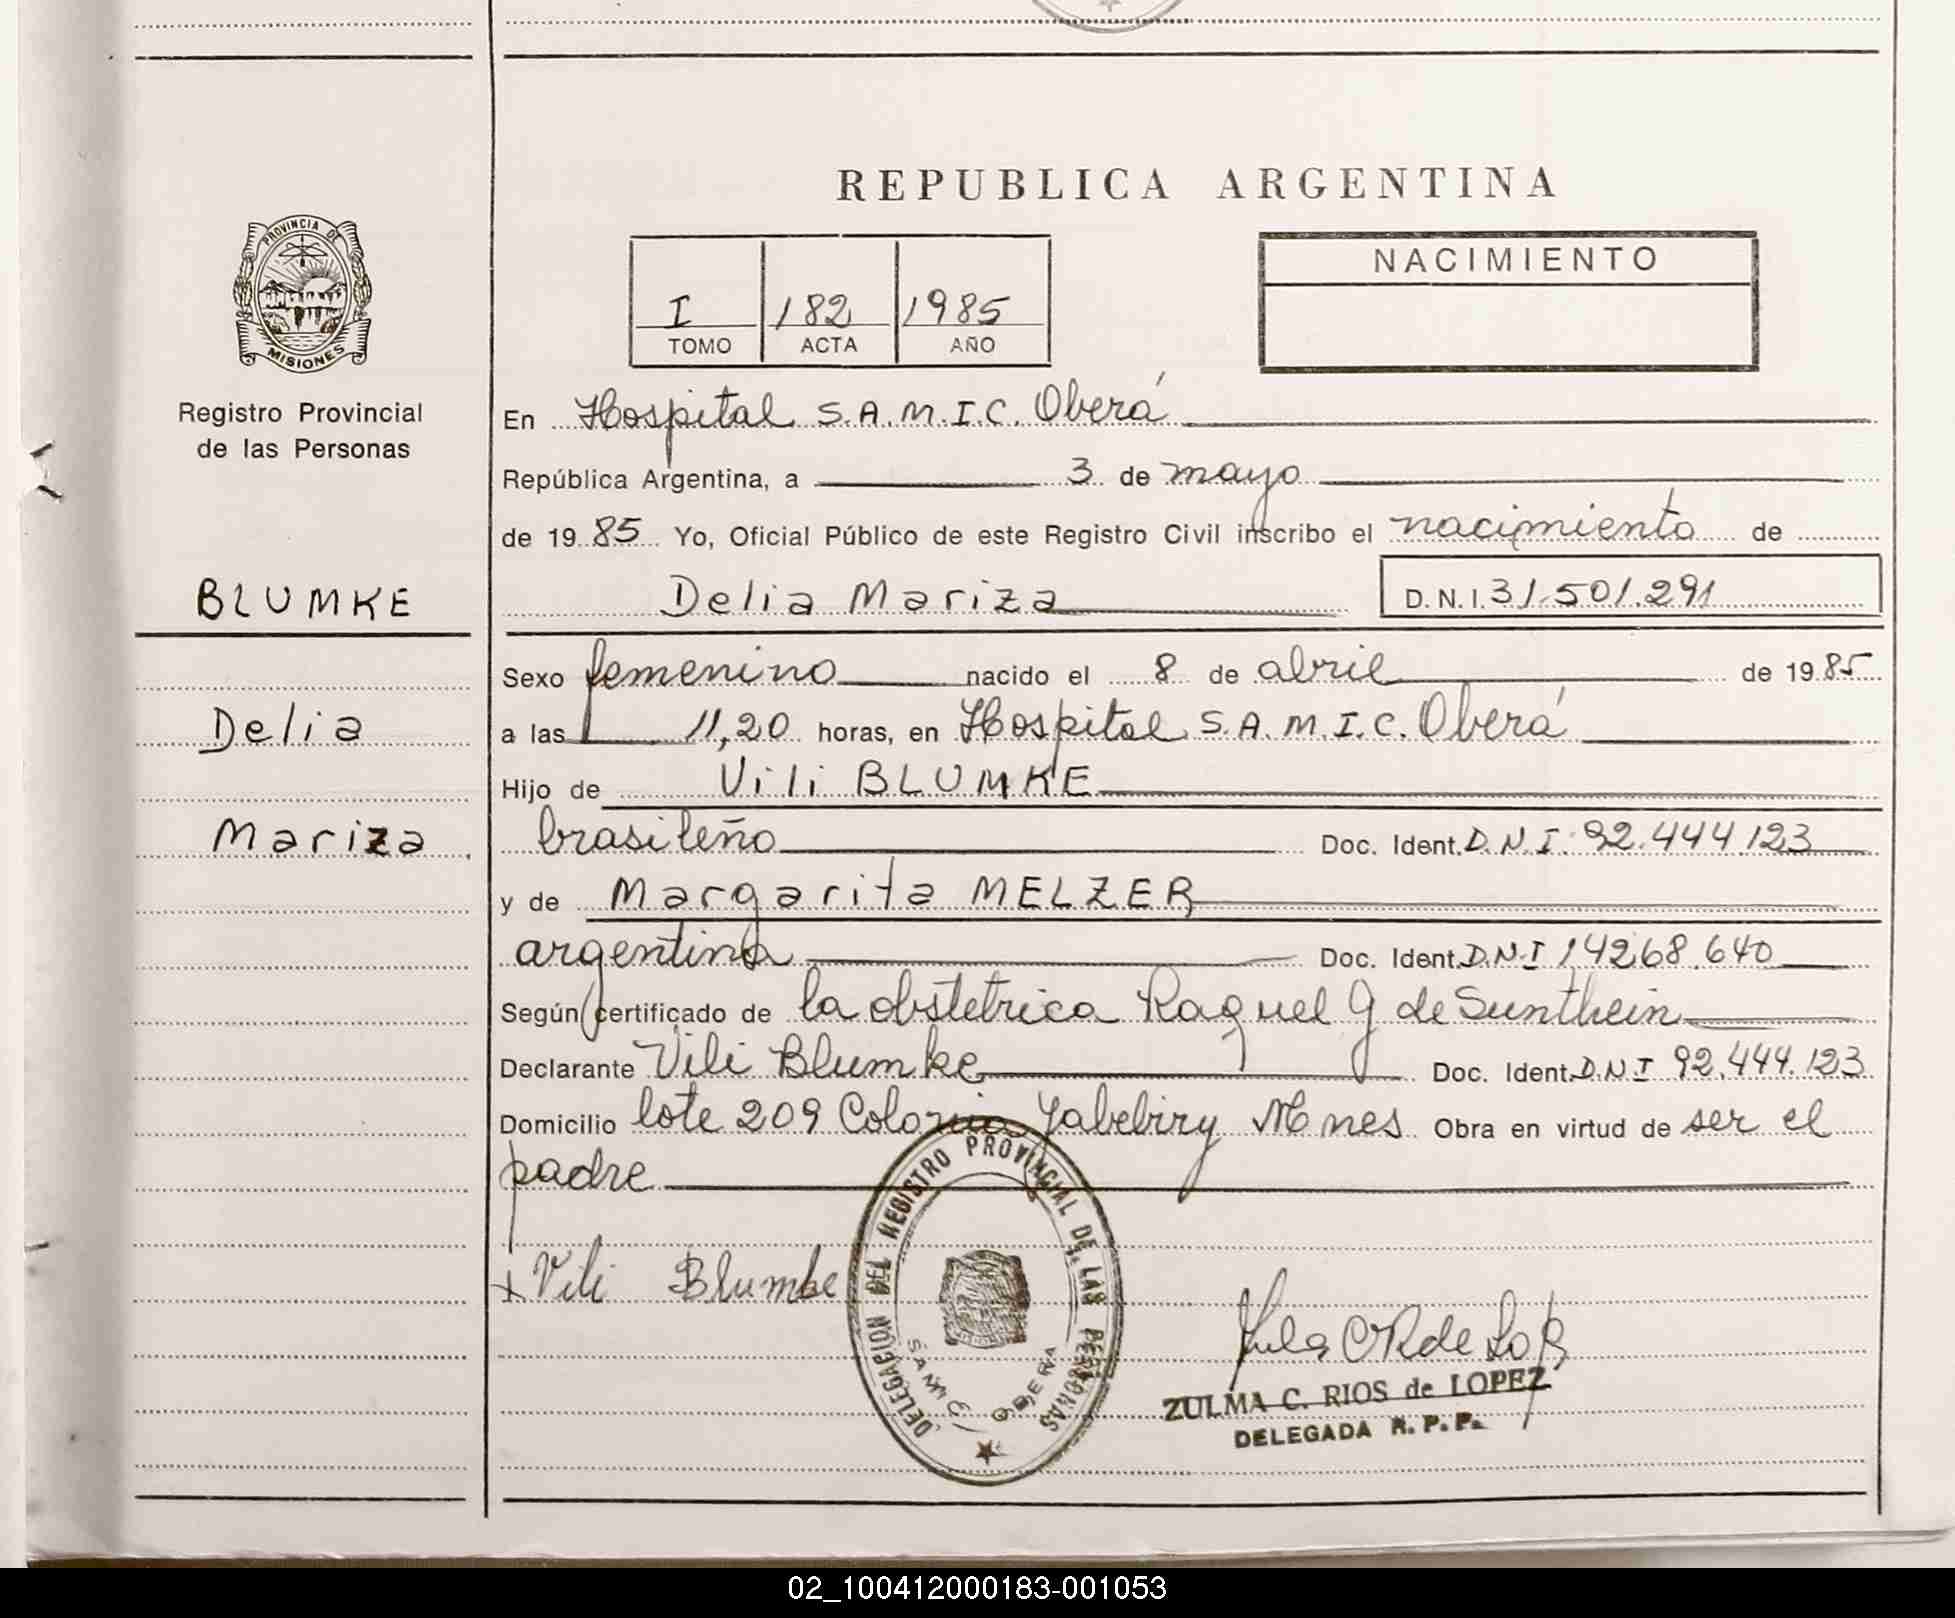 REPUBLICA ARGENTINA
PROVINCIA DE
MISIONES
Registro Provincial
de las Personas
I 182 1985
TOMO ACTA AÑO
NACIMIENTO
En Hospital S.A.M.I.C. Oberá
República Argentina, a 3 de mayo
de 1985 Yo, Oficial Público de este Registro Civil inscribo el nacimiento de
BLUMKE
Delia Mariza D.N.I. 31.501.291
Sexo femenino nacido el 8 de abril de 1985
Delia
a las 11,20 horas, en Hospital S.A.M.I.C. Oberá
Hijo de Vili BLUMKE
Mariza
brasileño Doc. Ident. D.N.I. 92.444.123
y de Margarita MELZER
argentina Doc. Ident. D.N.I 14268.640
Según certificado de la obstetrica Raquel G de Sunthein
Declarante Vili Blumke Doc. Ident. D.N.I 92.444.123
Domicilio lote 209 Colonia Yabebiry Mnes Obra en virtud de ser el
padre
x Vili Blumke
DELEGACIÓN DEL REGISTRO PROVINCIAL DE LAS PERSONAS
OBERA
ZULMA C. RIOS de LOPEZ
DELEGADA R. P. P.
02_100412000183-001053